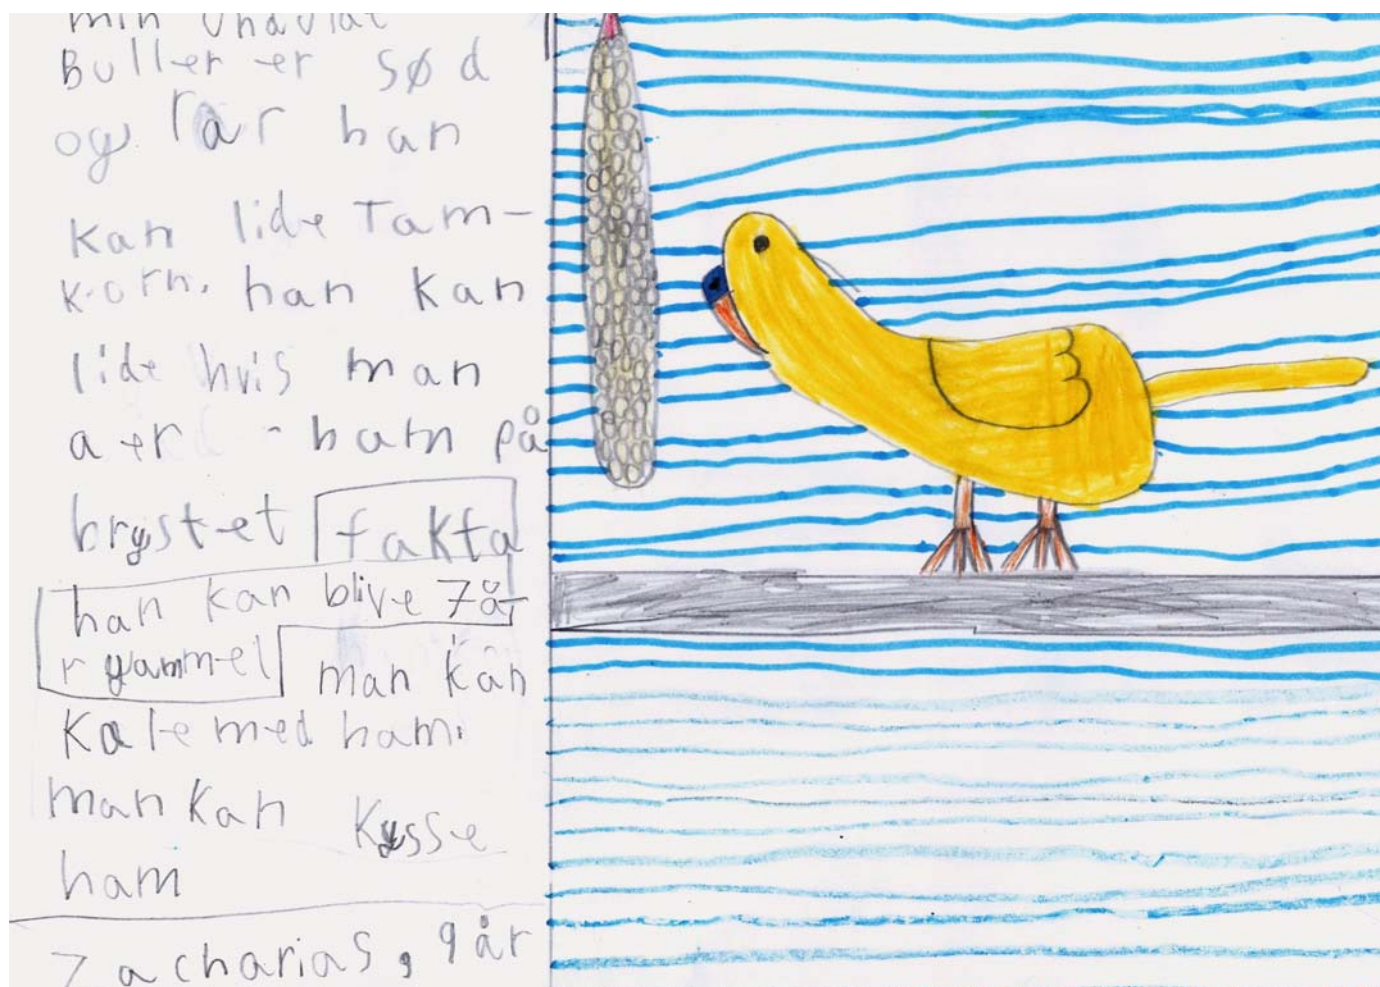 min undulat
Buller er sød
og rar han
kan lide Tam-
korn. han kan
lide hvis man
aer - ham på
brystet fakta
han kan blive 7 år
r gammel man kan
Kæle med ham.
man kan kysse
ham
Zacharias, 9 år